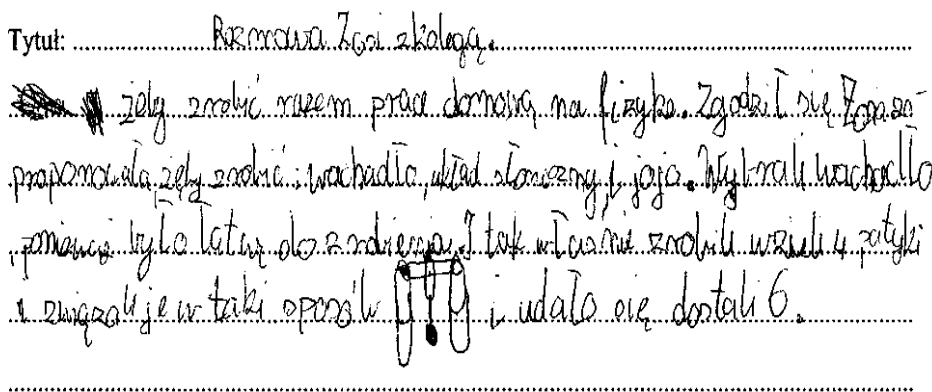 Tytuł: Rozmowa Zosi z kolegą.
żeby zrobić razem pracę domową na fizykę. Zgodził się Zosia za-
proponowała, żęby zrobić: wachadło, układ słoneczny i jojo. Wybrali wachadło
, poniewarz było łatwę do zrobienia. I tak właśnie zrobili wzieli 4 patyki
i związali je w taki sposób i udało się dostali 6.